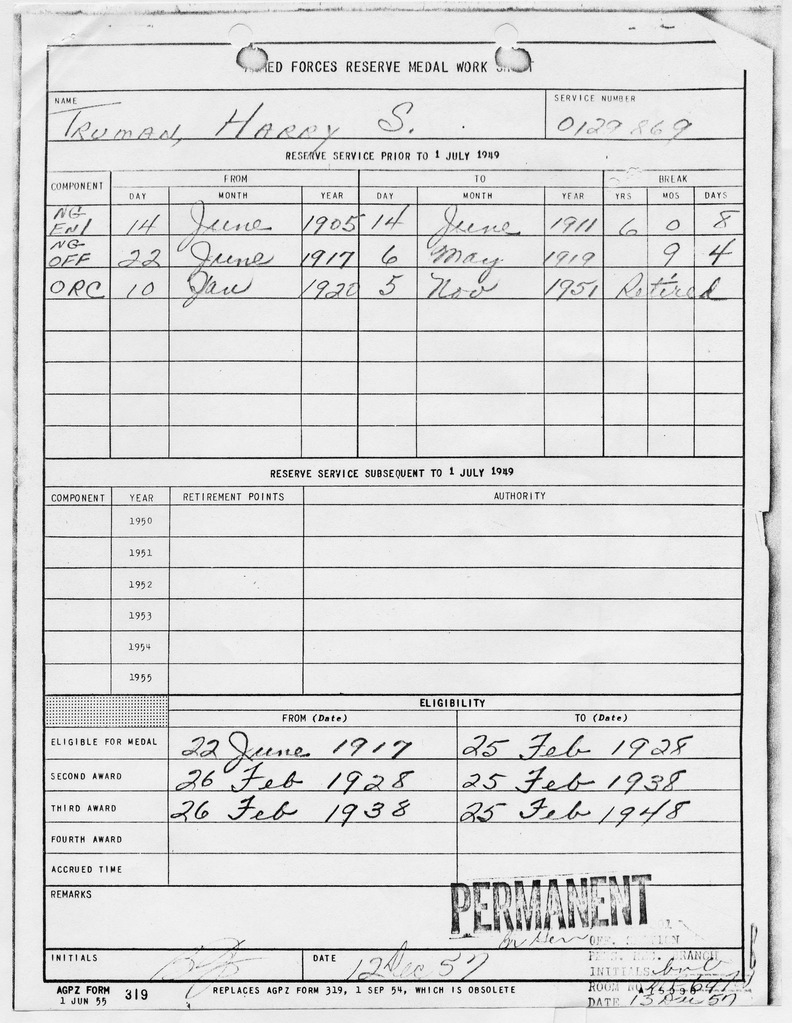 ARMED FORCES RESERVE MEDAL WORK SHEET
NAME
TRUMAN, HARRY S.
SERVICE NUMBER
0129869
RESERVE SERVICE PRIOR TO 1 JULY 1949
COMPONENT FROM TO BREAK
DAY MONTH YEAR DAY MONTH YEAR YRS MOS DAYS
NG ENl 14 June 1905 14 June 1911 6 0 8
NG OFF 22 June 1917 6 May 1919 9 4
ORC 10 Jan 1920 5 Nov 1951 Retired
RESERVE SERVICE SUBSEQUENT TO 1 JULY 1949
COMPONENT YEAR RETIREMENT POINTS AUTHORITY
1950
1951
1952
1953
1954
1955
ELIGIBILITY
FROM (Date) TO (Date)
ELIGIBLE FOR MEDAL 22 June 1917 25 Feb 1928
SECOND AWARD 26 Feb 1928 25 Feb 1938
THIRD AWARD 26 Feb 1938 25 Feb 1948
FOURTH AWARD
ACCRUED TIME
REMARKS
PERMANENT
OFF. SECTION
BRANCH
INITIALS
ROOM NO
DATE 13 Dec 57
INITIALS DATE 12 Dec 57
AGPZ FORM 319 REPLACES AGPZ FORM 319, 1 SEP 54, WHICH IS OBSOLETE
1 JUN 55